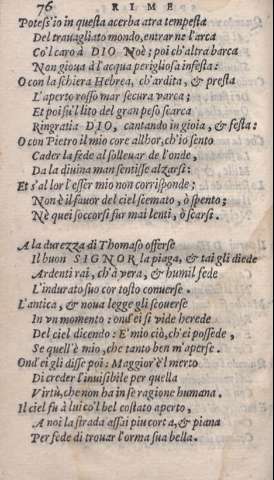 76 RIME
Potess'io in questa acerba atra tempesta
Del travagliato mondo, entrar ne l'arca
Co'l caro à DIO Noè; poi ch'altra barca
Non gioua à l'acqua perigliosa infesta:
O con la schiera Hebrea, ch'ardita, & presta
L'aperto rosso mar secura varca;
Et poi su'l lito del gran peso scarca
Ringratia DIO, cantando in gioia, & festa:
O con Pietro il mio core allhor, ch'io sento
Cader la fede al solleuar de l'onde,
Da la diuina man sentisse alzarsi:
Et s'al lor l'esser mio non corrisponde;
Non è il fauor del ciel scemato, ò spento;
Nè quei soccorsi fur mai lenti, ò scarsi.
A la durezza di Thomaso offerse
Il buon SIGNOR la piaga, & tai gli diede
Ardenti rai, ch'à vera, & humil fede
L'indurato suo cor tosto conuerse.
L'antica, & noua legge gli scouerse
In vn momento: ond'ei si vide herede
Del ciel dicendo: E' mio ciò, ch'ei possede,
Se quell'è mio, che tanto ben m'aperse.
Ond'ei gli disse poi: Maggior'è l merto
Di creder l'inuisibile per quella
Virtù, che non ha in se ragione humana.
Il ciel fu à lui co'l bel costato aperto,
A noi la strada assai piu corta, & piana
Per fede di trouar l'orma sua bella.